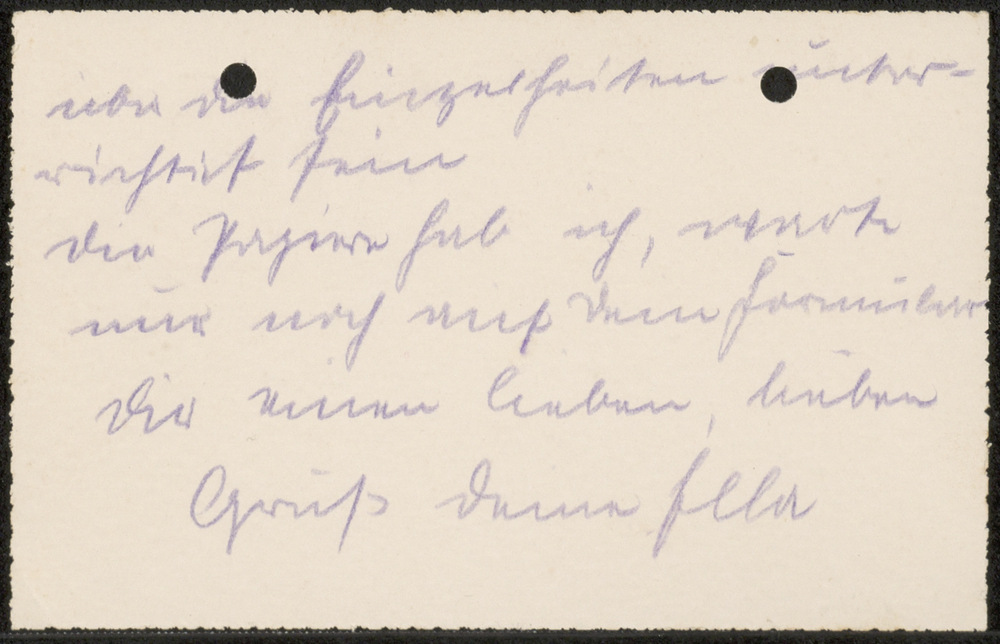 über die Einzelheiten unter-
richtet sein
die Papiere hab ich, warte
nur noch auf Dein Formular
Dir einen lieben, lieben
Gruß Deine Ella